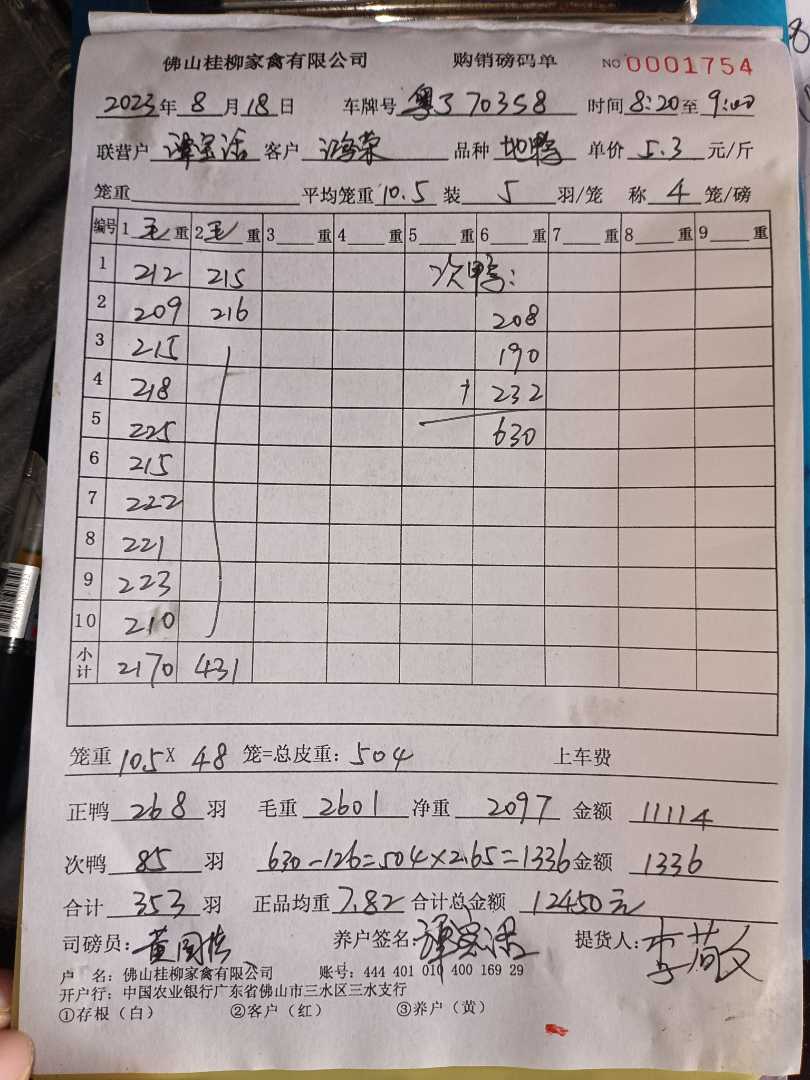 佛山桂柳家禽有限公司 购销磅码单 NO 0001754
2023年 8月18日 车牌号 粤J70358 时间 8:20至 9:00
联营户 谭宝洁 客户 鸿荣 品种 地鸭 单价 5.3 元/斤
笼重 平均笼重 10.5 装 5 羽/笼 称 4 笼/磅
编号 1 毛 重 2 毛 重 3 重 4 重 5 重 6 重 7 重 8 重 9 重
1 212 215 次鸭:
2 209 216 208
3 215 190
4 218 + 232
5 225 630
6 215
7 222
8 221
9 223
10 210
小计 2170 431
笼重 10.5 X 48 笼=总皮重: 504 上车费
正鸭 268 羽 毛重 2601 净重 2097 金额 11114
次鸭 85 羽 630-126=504×2.65=1336 金额 1336
合计 353 羽 正品均重 7.82 合计总金额 12450元
司磅员: 黄国 养户签名 谭宝洁 提货人: 李
户 名: 佛山桂柳家禽有限公司 账号: 444 401 010 400 169 29
开户行: 中国农业银行广东省佛山市三水区三水支行
①存根（白） ②客户（红） ③养户（黄）